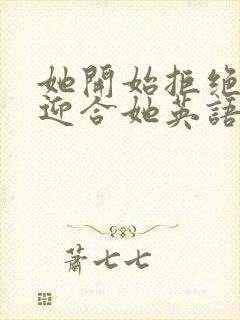 她開始拒绝
迎合她英語
蕭七七